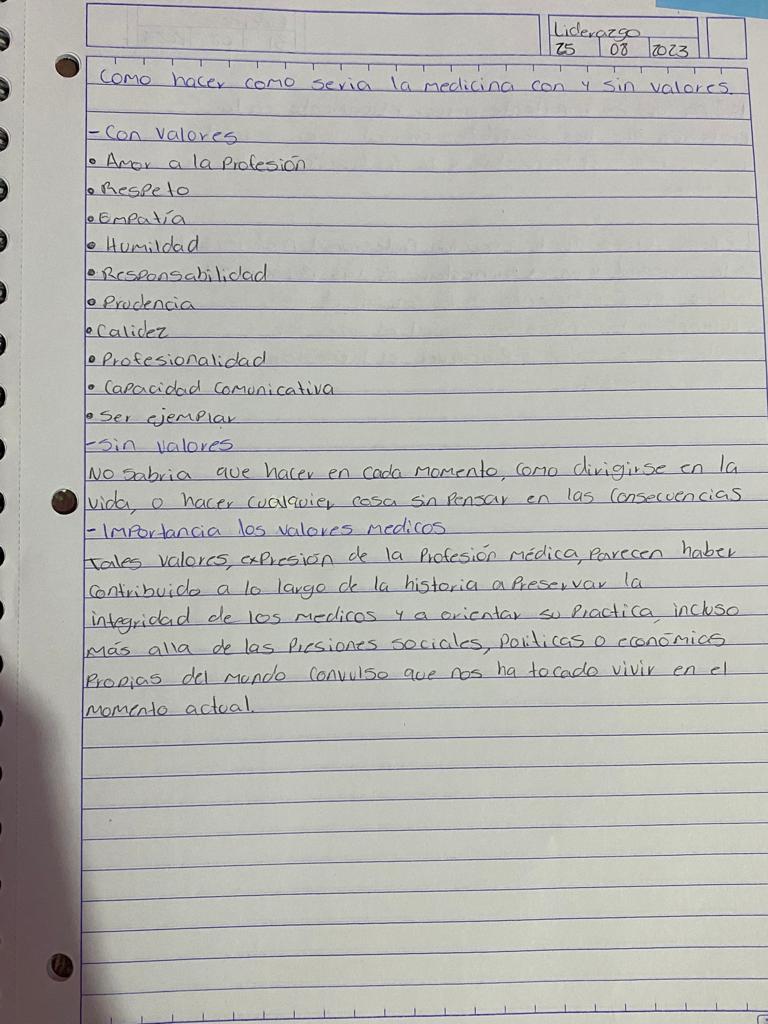 Liderazgo
25 08 2023
Como hacer como seria la medicina con y sin valores.
- Con valores
• Amor a la Profesión
• Respeto
• Empatía
• Humildad
• Responsabilidad
• Prudencia
• Calidez
• Profesionalidad
• Capacidad comunicativa
• Ser ejemplar
- Sin valores
No sabria que hacer en cada momento, como dirigirse en la
vida, o hacer cualquier cosa sin pensar en las consecuencias
- Importancia los valores medicos
Tales valores, expresión de la Profesión médica, parecen haber
contribuido a lo largo de la historia a preservar la
integridad de los medicos y a orientar su practica, incluso
más alla de las presiones sociales, políticas o económics
propias del mundo convulso que nos ha tocado vivir en el
momento actual.